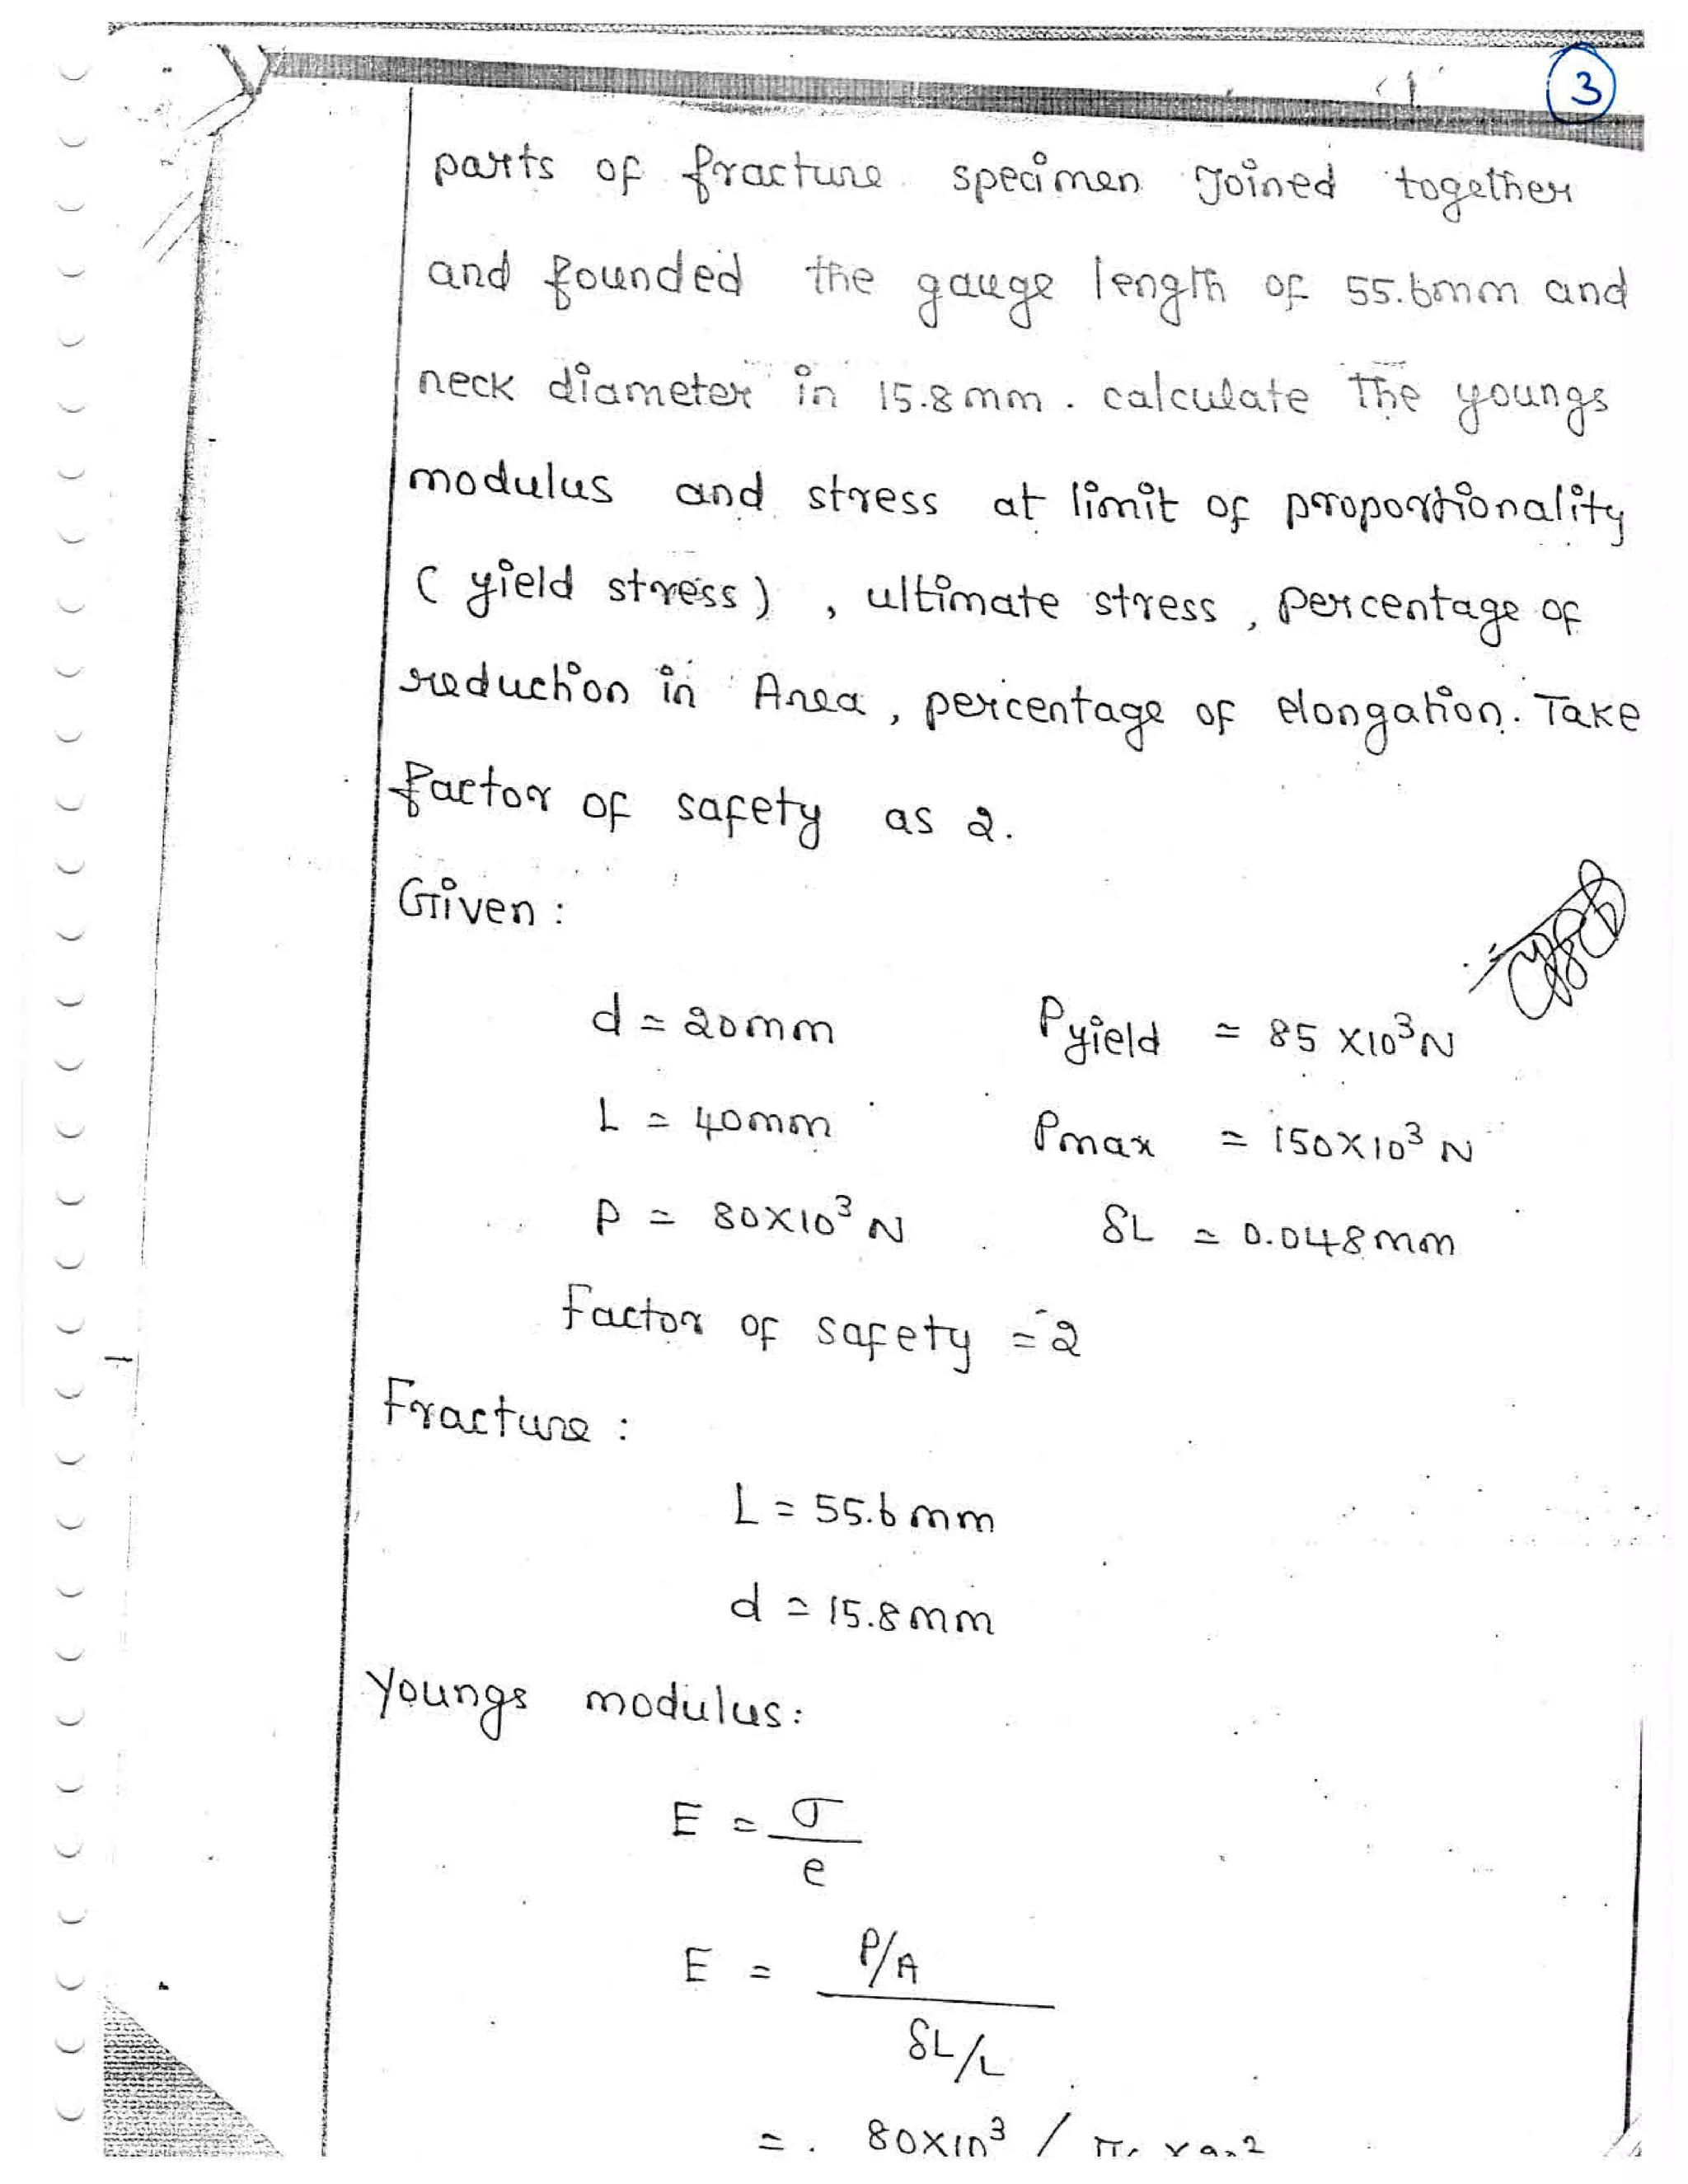 3
parts of fracture specimen Joined together
and founded the gauge length of 55.6mm and
neck diameter in 15.8mm. calculate the youngs
modulus and stress at limit of proportionality
(yield stress), ultimate stress, percentage of
reduction in Area, percentage of elongation. Take
factor of safety as 2.
Given:
d = 20mm Pyield = 85 x10³N
L = 40mm Pmax = 150x10³ N
P = 80x10³ N δL = 0.048mm
Factor of safety = 2
Fracture:
L = 55.6mm
d = 15.8mm
Youngs modulus:
E = σ
e
E = P/A
δL/L
= 80x10³ /